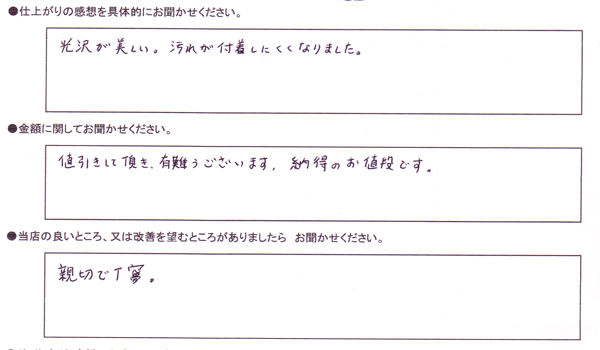 ●仕上がりの感想を具体的にお聞かせください。
光沢が美しい。汚れが付着しにくくなりました。
●金額に関してお聞かせください。
値引きして頂き、有難うございます。納得のお値段です。
●当店の良いところ、又は改善を望むところがありましたら お聞かせください。
親切で丁寧。